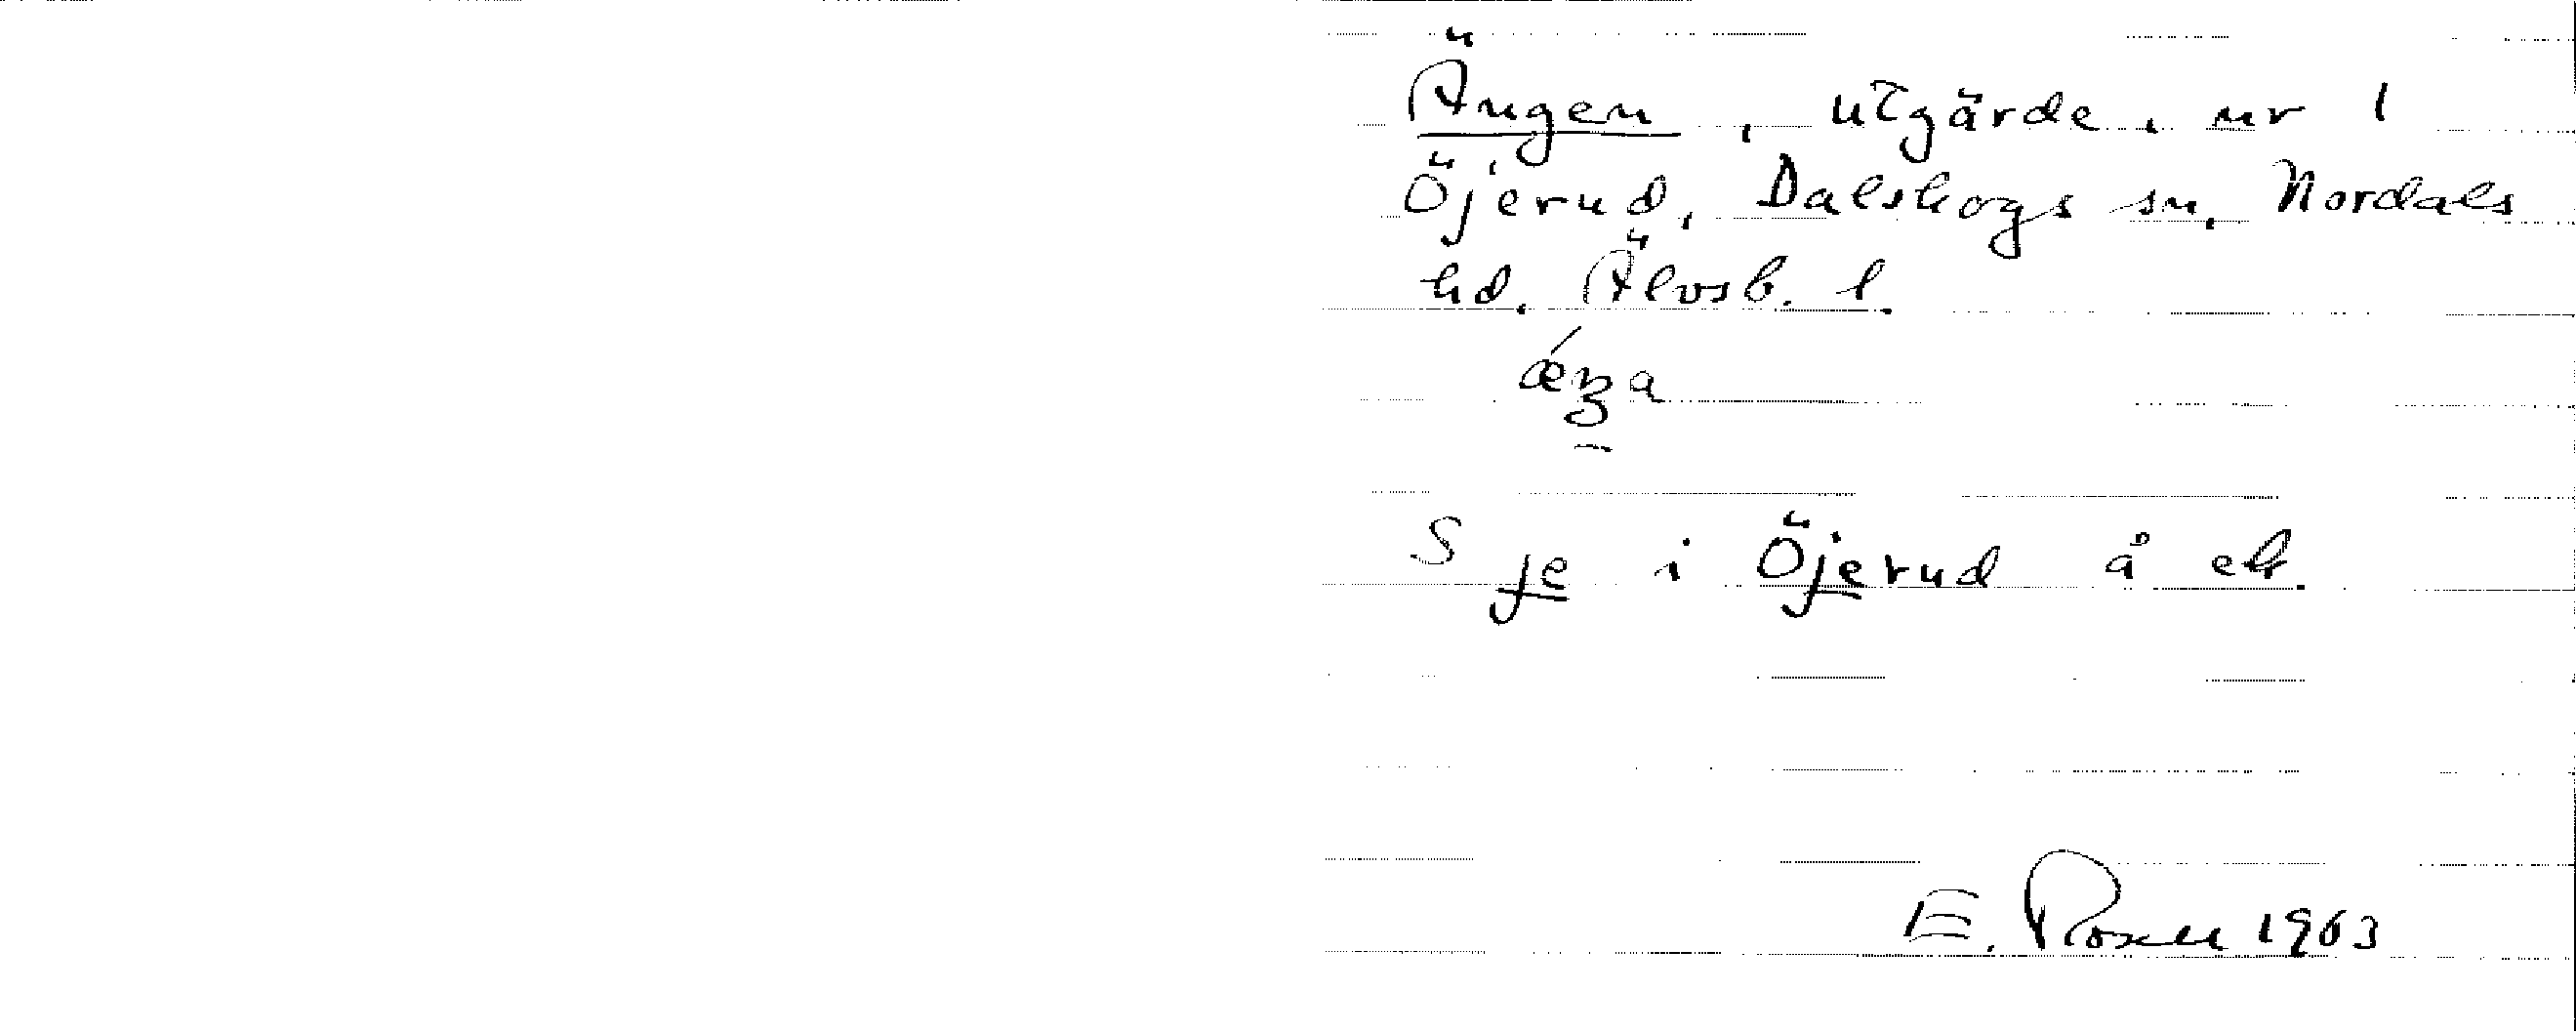 Ängen, utgärde, nr 1
Öjerud, Dalskogs sn, Nordals
hd. Älvsb. l.
S je i Öjerud å ek.
E. Rosell 1963